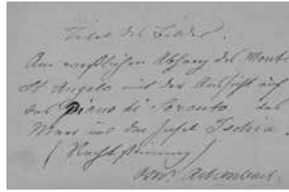 Titel des Bildes.
Am westlichen Abhang des Monte
St Angelo mit der Aussicht auf
das Piano di Soronto das
Meer und die Insel Ischia.
(Nachtstimmung)
Osw. Achenbach